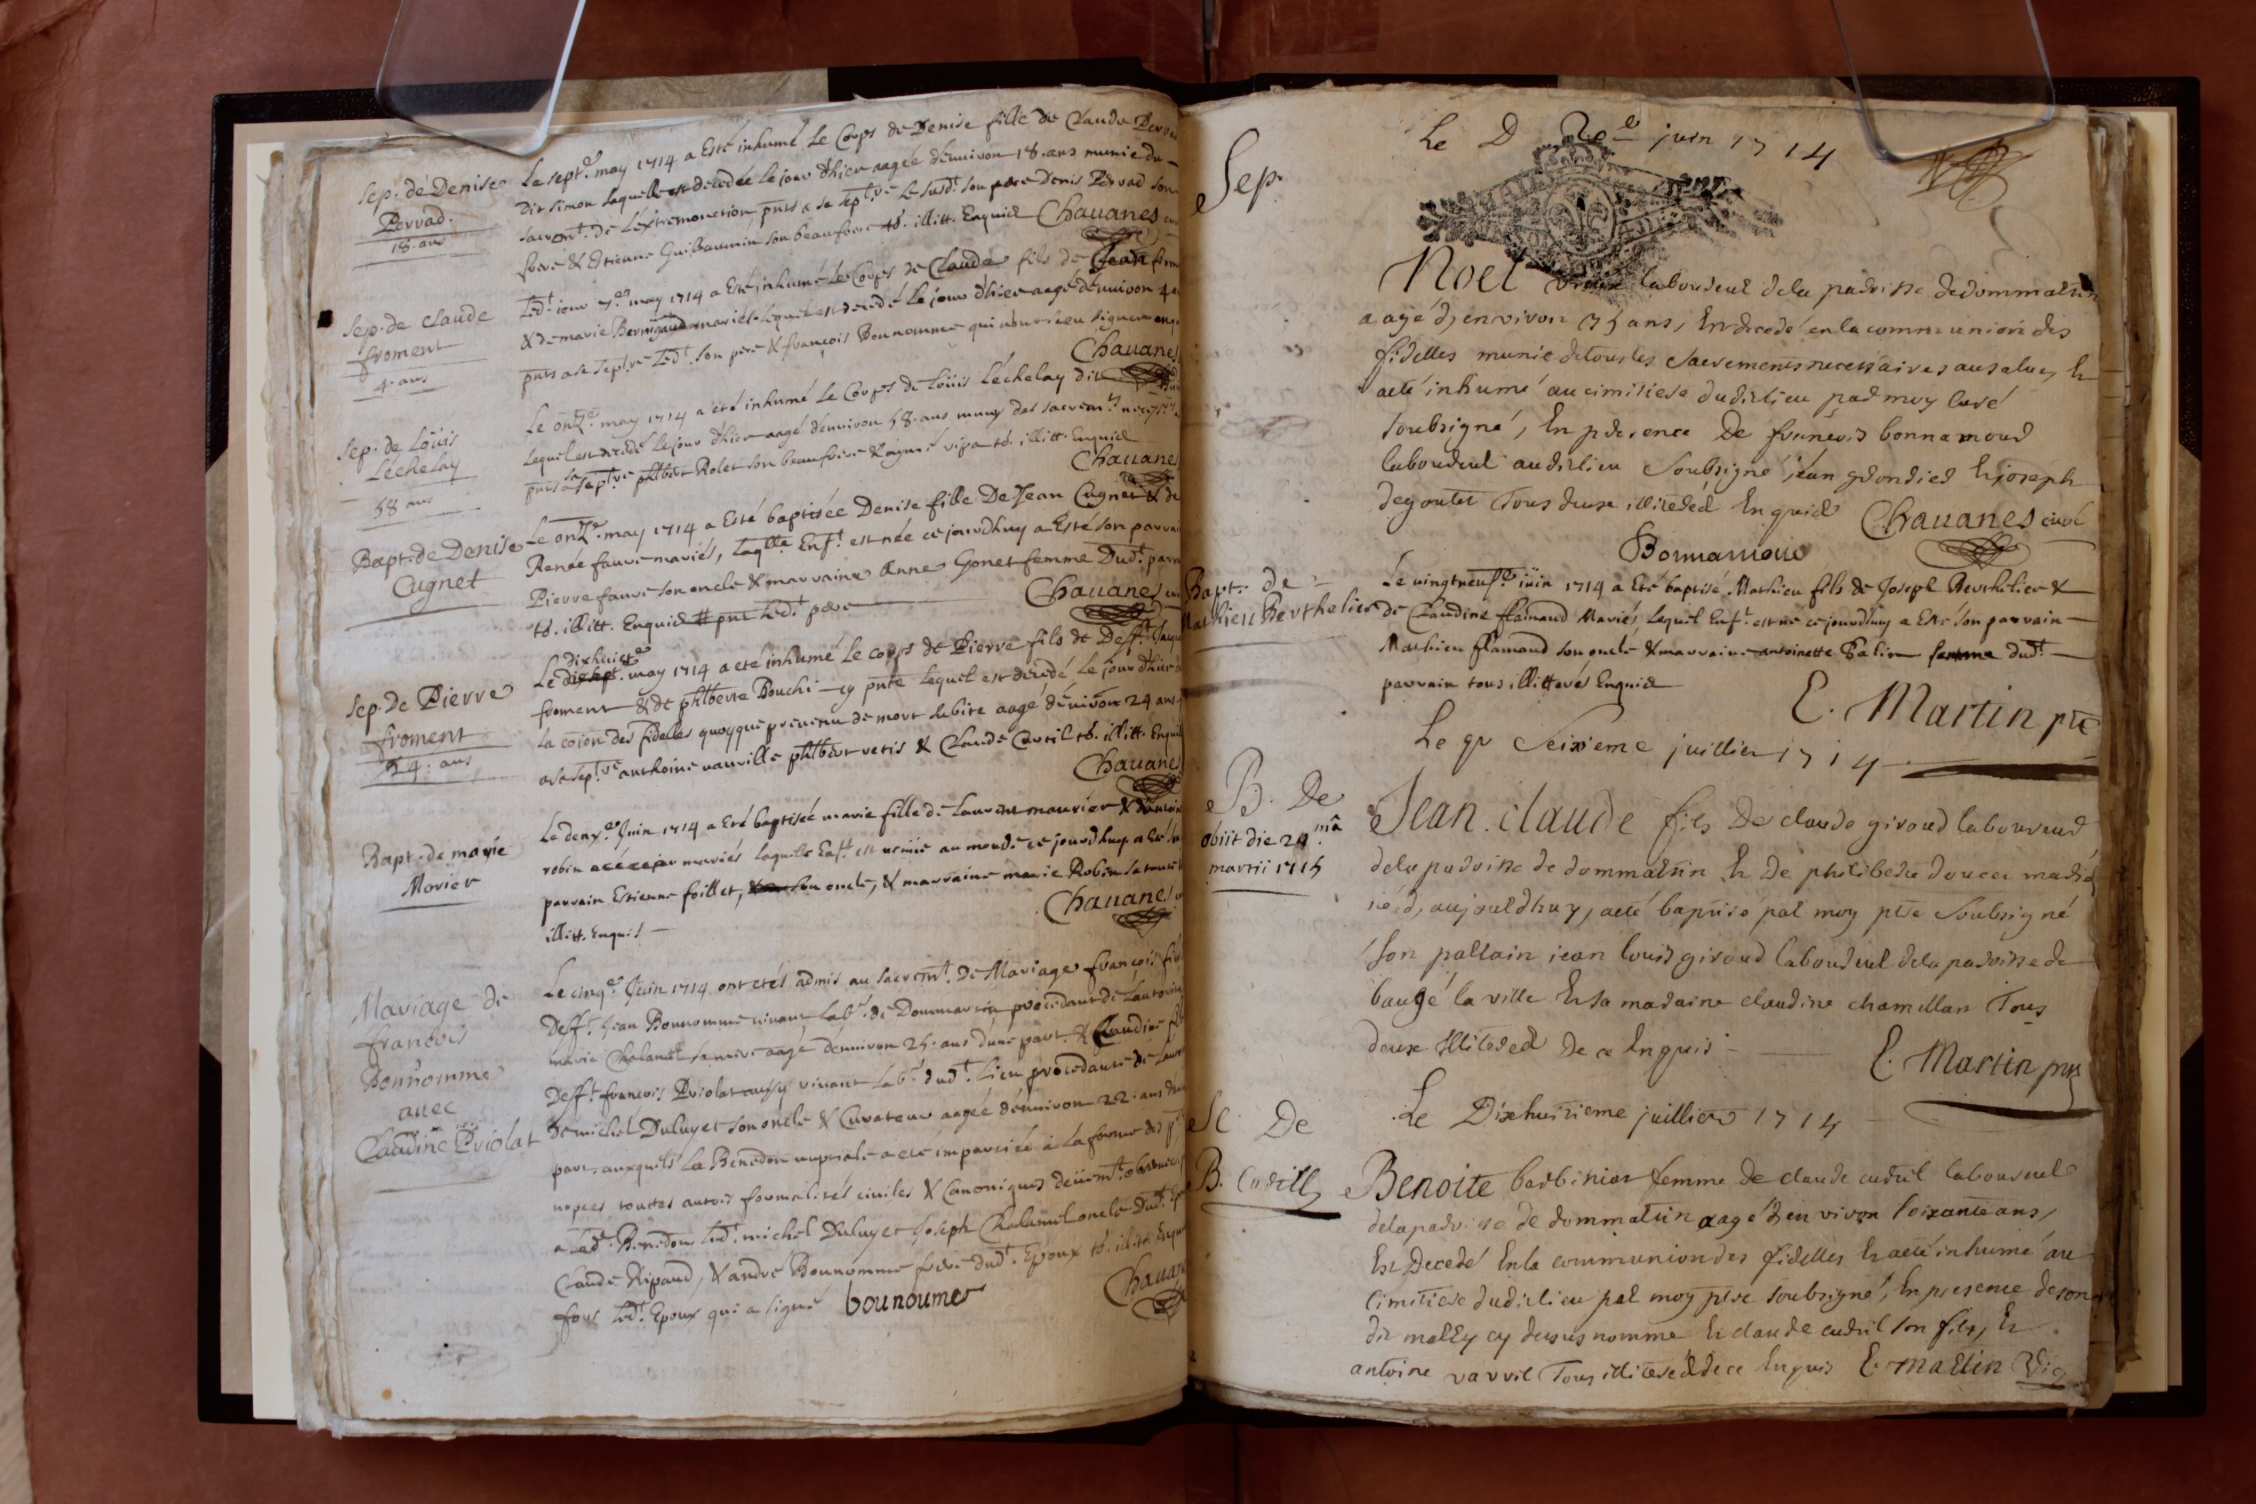 Sep. de Denise
Pervad.
18. ans
Le sept.e may 1714 a Esté inhumé Le Corps de Denise fille de Claude
dit simon laquelle est decedée Le jour d'hier aagée d'environ 18. ans munie du
sacrem.t de L'extremonction, pnts a sa sept.re Le susd.t son pere Denis Pervad son
frere & Estienne Guillaumin son beaufrere tš. illitt. Enquis Chauanes
Sep. de Claude
froment
4. ans
Led.t jour 7.e may 1714 a Eté inhumé Le Corps de Claude fils de Jean
& de marie mariés lequel est decedé Le jour d'hier aagé d'environ 4
pnts a sa sept.re Led.t son pere & françois Bonnomme qui n'ont sceu signer enq
Chauanes
Sep. de Loüis
Lechelay
58 ans
Le onz.e may 1714 a été inhumé Le Corps de Loüis Lechelay dit
Lequel est decedé Le jour d'hier aagé d'environ 58. ans muny des sacrem.ts
pnts a sa sept.re philbert Rolet son beaufrere & tš. illitt. Enquis
Chauanes
Bapt. de Denise
Cugnet
Le onz.e may 1714 a Esté baptisée Denise fille De Jean Cugnet & de
Renée fauve mariés, laq.lle Enf.t est née ce jourdhuy a Esté son parrain
Pierre fauve son oncle & marraine Anne Gonet femme Dud.t parr
tš. illitt. Enquis pnt Led.t pere Chauanes
Sep. de Pierre
froment
24. ans
dixhuict.e
Le may 1714 a eté inhumé Le corps de Pierre fils de Deff.t
froment & de philberte Bouchi cy pnte lequel est decedé Le jour d'hier
La coïon des fideles quoyque prevenu de mort subite aagé d'environ 24 ans
a sa sept.re anthoine vauville philbert vetis & Claude Curtil tš. illitt. Enquis
Chauanes
Bapt. de marie
Morier
Le deux.e Juin 1714 a Eté baptisée marie fille de Laurent maurier &
robin mariés laquelle Enf.t est venüe au monde ce jourdhuy a eté
parrain Estienne foillet, son oncle, & marraine marie Robin
illitt. Enquis Chauanes
Mariage de
françois
Bonnomme
avec
Claudine Priolat
Le cinq.e Juin 1714 ont etés admis au sacrem.t de Mariage françois fils
Deff.t Jean Bonnomme vivant Lab.r de Dommartin procedant de L'autorité
marie Chalamel sa mere aagé d'environ 25. ans d'une part, & Claudine
Deff.t françois Priolat aussy vivant Lab.r dud.t Lieu procedante de
de michel Duluyet son oncle & Curateur aagée d'environ 22. ans
part, auxquels La Benedon nuptiale a eté impartiée à la forme des
nopces toutes autres formalités civiles & Canoniques deüem.t observées
a lad.e Benedon Led.t michel Duluyet Joseph Chalamel oncle Dud.t
Claude Ripaud, & andré Bonnomme frere dud.t Epoux tš. illitt. Enquis
fors Led.t Epoux qui a signé bounoume Chauanes
Sep.
Le D juin 1714
Noel laboureur dela paroisse de dommartin
aagé d'environ 75 ans, Est decedé en la communion des
fidelles munie de tous les sacrements necessaires au salut, Et
a eté inhumé au cimitiere dudit lieu par moy curé
soubsigné, En presence De francois bonnamour
laboureur audit lieu soubsigné jean grondier Et joseph
degoutet Tous deux illiterés Enquis Chauanes curé
Bonnamour
Bapt. de
Mathieu Berthelier
Le vingtneuf.e juin 1714 a Eté baptisé Mathieu fils de Joseph Berthelier &
de Claudine flamand Mariés, Lequel Enf.t est né ce jourdhuy a Eté son parrain
Mathieu flamand son oncle & marraine antoinette Palin femme dud.t
parrain tous illitterés Enquis
E. Martin ptre
Le Seixieme juillier 1714
B. De
obiit die 29.ma
martii 1715
Jean. claude fils De claude giroud laboureur
dela paroisse de dommartin Et De philiberte doucer mariés
né, aujourdhuy, a eté baptisé par moy ptre soubsigné
son parrain jean louis giroud laboureur dela paroisse de
baugé la ville Et sa maraine claudine chamillan Tous
deux illiteres De ce Enquis
E. Martin ptre
Le Dixhuitieme juillier 1714
Se De
B. Curtill
Benoite barbirier femme de claude curtil laboureur
dela paroisse de dommartin aagé d'environ soixante ans,
Est Decedé En la communion des fidelles Et a eté inhumé au
Cimitiere dudit lieu par moy ptre soubsigné, En presence de son
dit mary cy dessus nommé Et claude curtil son fils, Et
antoine vavril Tous illiterés de ce Enquis E. Martin Vic